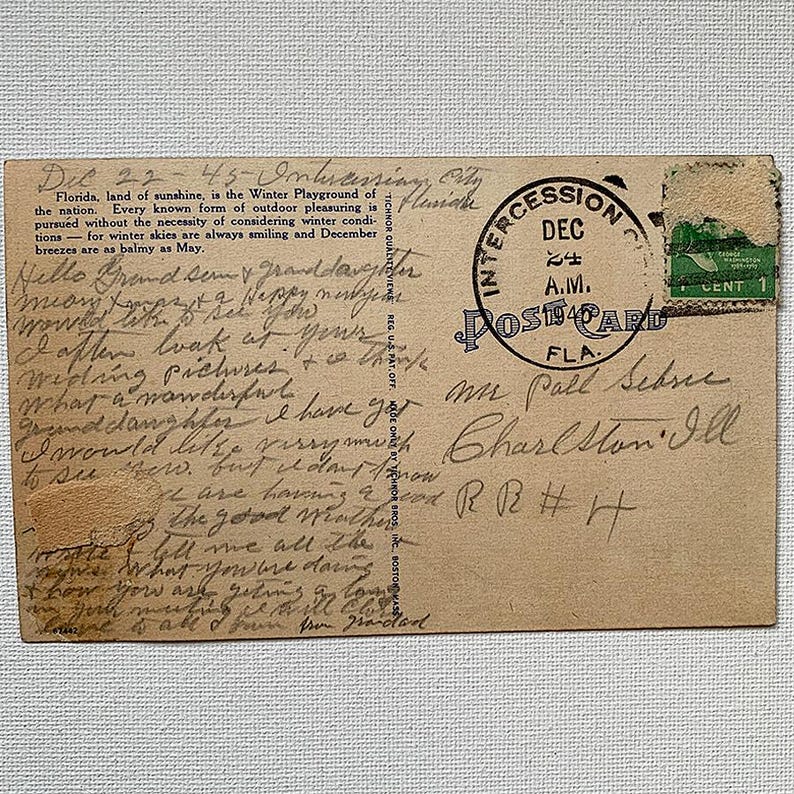 Dec 22 45 Intercession City
Florida
Florida, land of sunshine, is the Winter Playground of
the nation. Every known form of outdoor pleasuring is
pursued without the necessity of considering winter condi-
tions — for winter skies are always smiling and December
breezes are as balmy as May.
Hello Grandson & granddaughter
meory Xmas & a Happy newyear
Would like to see you
I often look at yours
Weding Pictures + I think
What a wonderful
granddaughter I have got
I would like verry much
to see you. but I dont know
We are having a good
the good Weather
tell me all the
news. What you are doing
& how you are geting a long
to all from Grandad
67442
TICHNOR QUALITY VIEWS REG. U.S. PAT. OFF. MADE ONLY BY TICHNOR BROS. INC., BOSTON, MASS.
INTERCESSION C
DEC
24
A.M.
1940
FLA.
GEORGE
WASHINGTON
1 CENT 1
POST CARD
Mr Poll Sebree
Charlston Ill
R R # 4